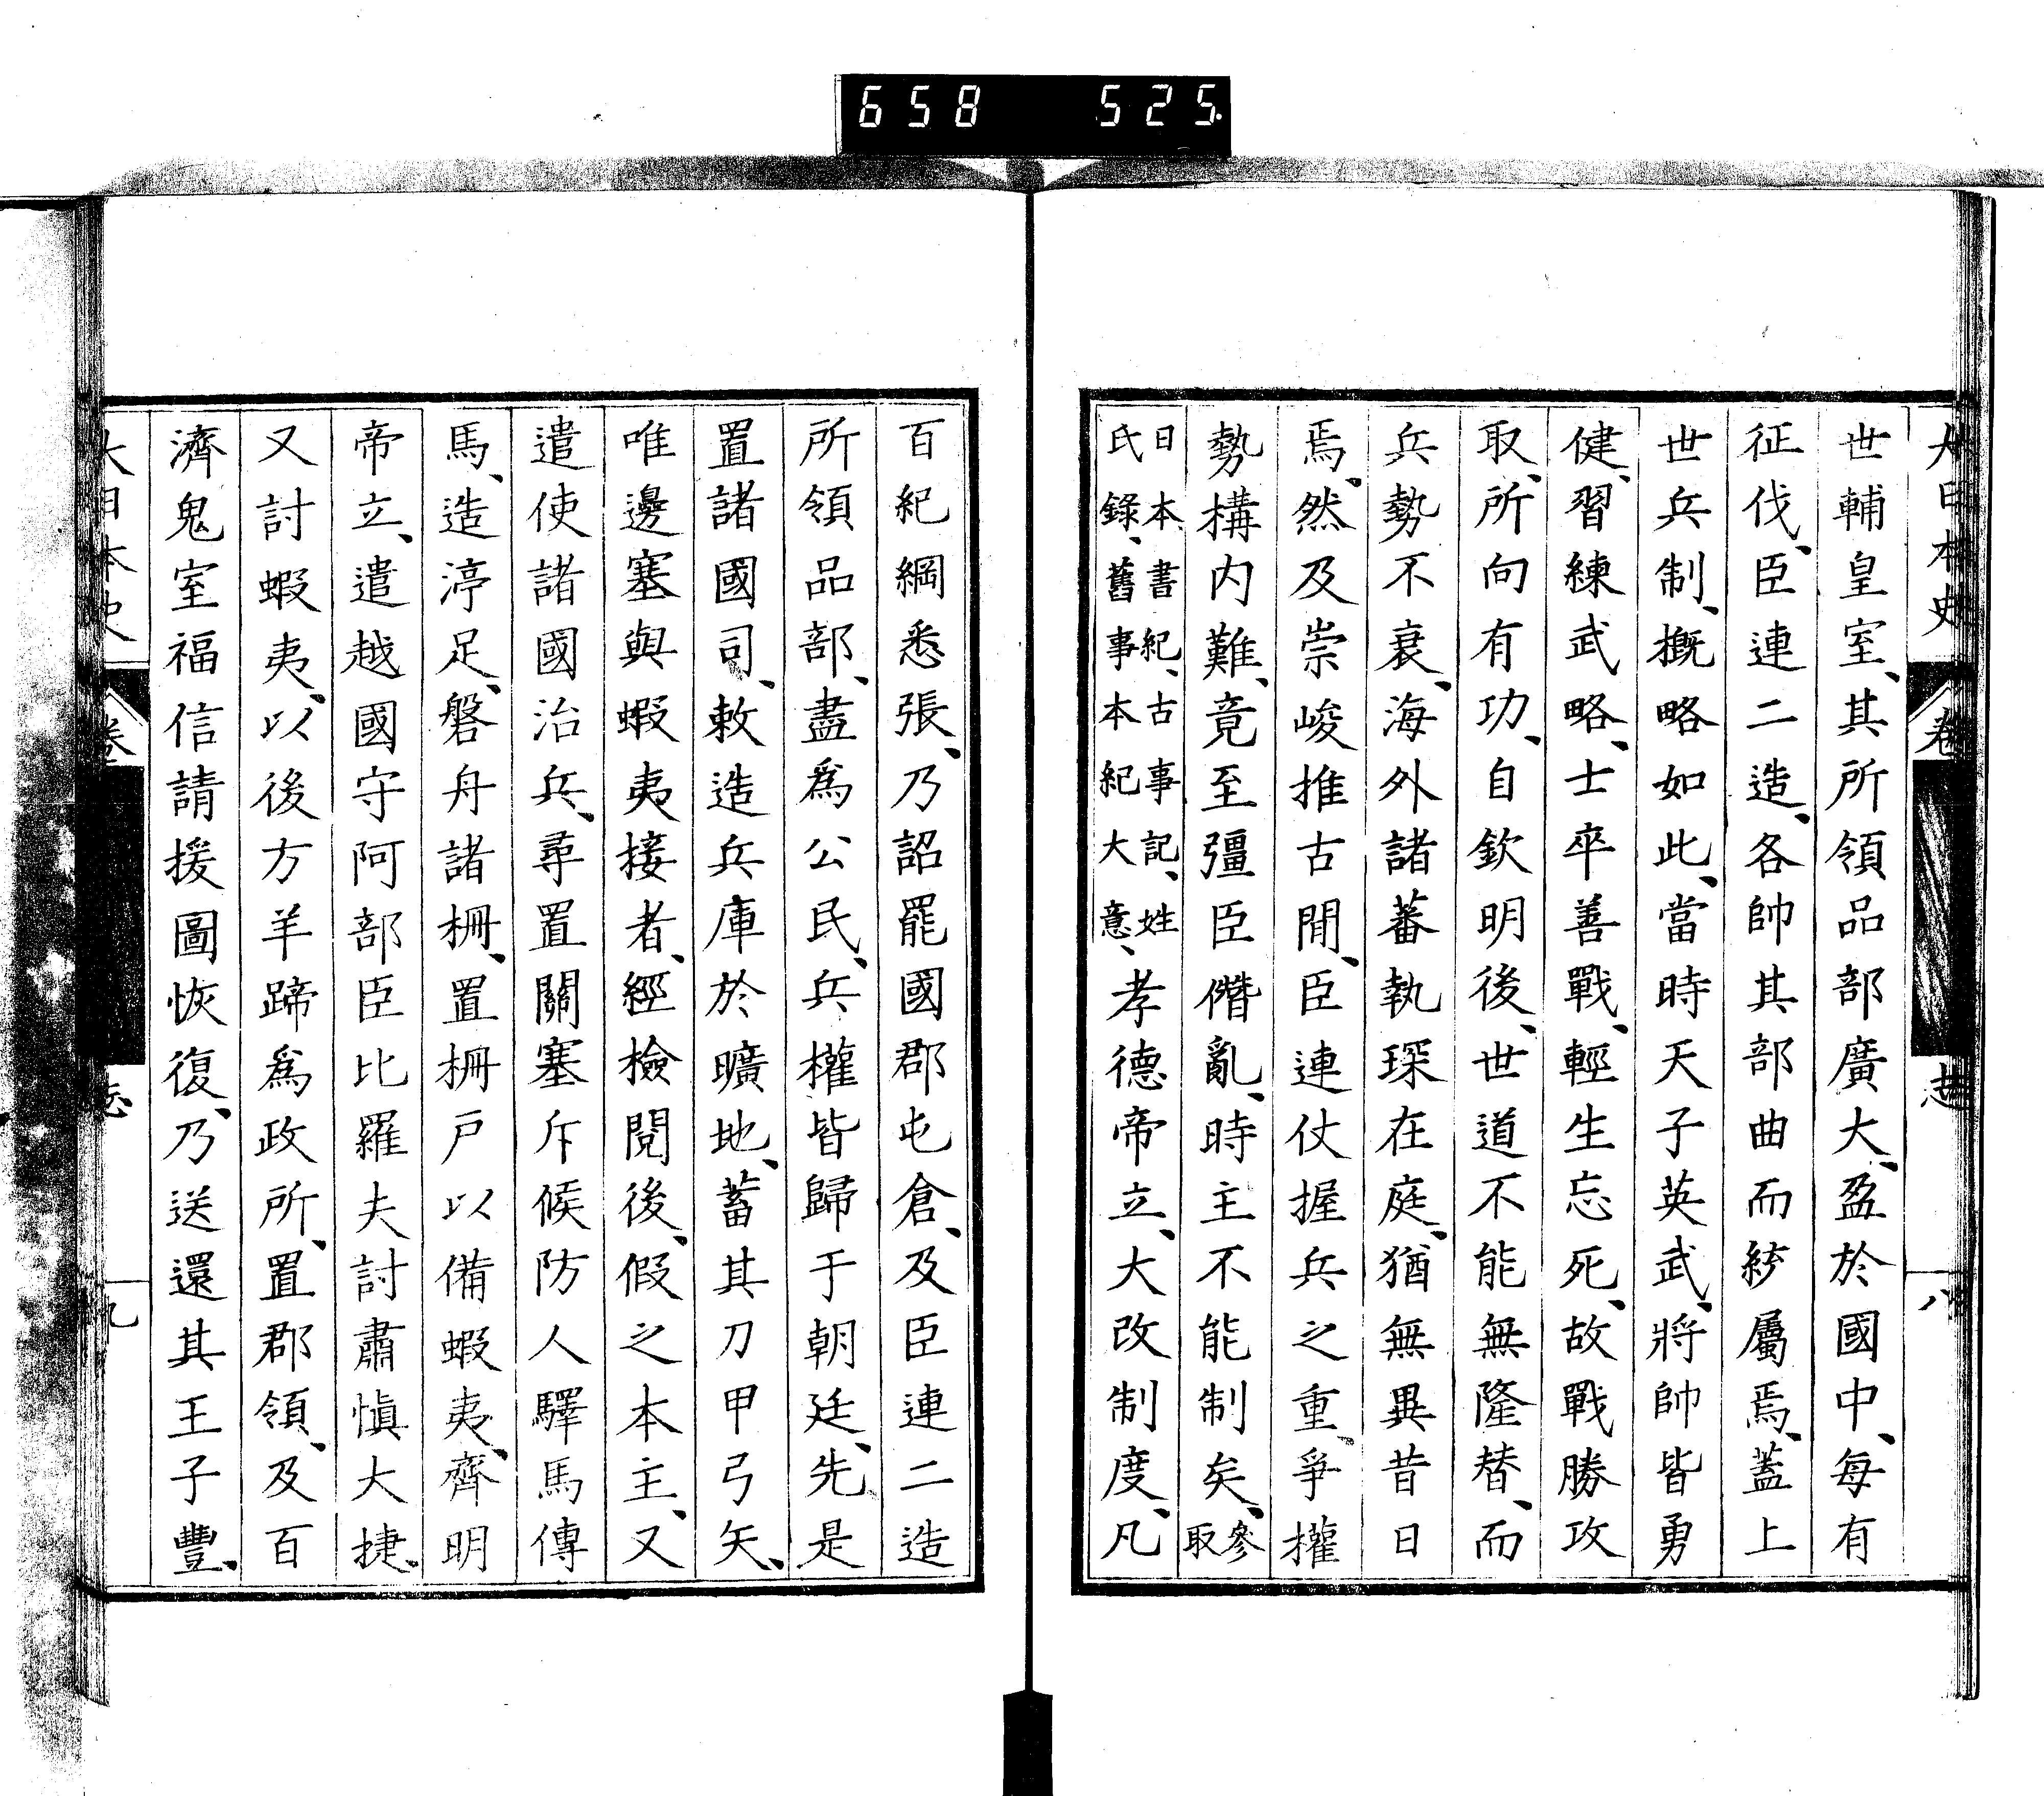 658 525
大日本史 卷 志 八
世輔皇室、其所領品部廣大、盈於國中、每有
征伐、臣連二造、各帥其部曲而綍屬焉、蓋上
世兵制、概略如此、當時天子英武、將帥皆勇
健、習練武略、士卒善戰、輕生忘死、故戰勝攻
取、所向有功、自欽明後、世道不能無隆替、而
兵勢不衰、海外諸蕃執琛在庭、猶無異昔日
焉、然及崇峻推古間、臣連仗握兵之重、爭權
勢構内難、竟至彊臣僭亂、時主不能制矣、參取
日本書紀、古事記、姓氏錄、舊事本紀大意、孝德帝立、大改制度、凡
百紀綱悉張、乃詔罷國郡屯倉、及臣連二造
所領品部、盡爲公民、兵權皆歸于朝廷、先是
置諸國司、敕造兵庫於曠地、蓄其刀甲弓矢、
唯邊塞與蝦夷接者、經檢閱後、假之本主、又
遣使諸國治兵、尋置關塞斥候防人驛馬傳
馬、造渟足、磐舟諸柵、置柵戸以備蝦夷、齊明
帝立、遣越國守阿部臣比羅夫討肅愼大捷、
又討蝦夷、以後方羊蹄爲政所、置郡領、及百
濟鬼室福信請援圖恢復、乃送還其王子豐、
大日本史 卷 志 九